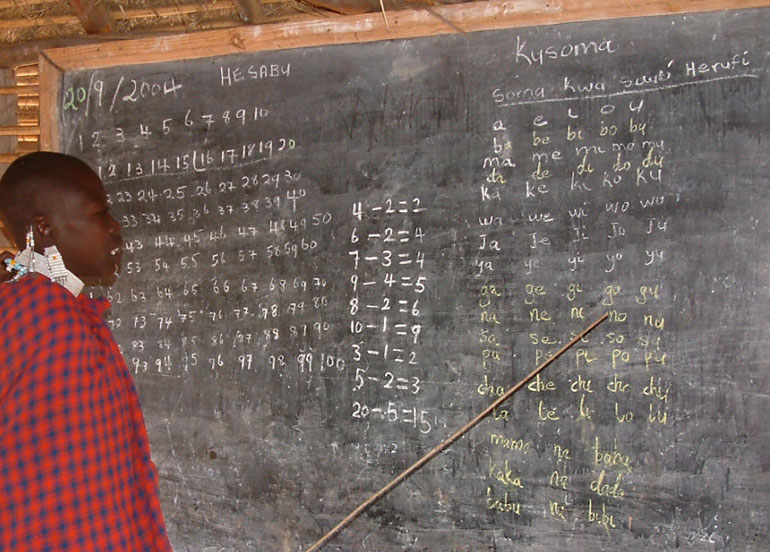 20/9/2004
HESABU
1 2 3 4 5 6 7 8 9 10
12 13 14 15 16 17 18 19 20
23 24 25 26 27 28 29 30
33 34 35 36 37 38 39 40
43 44 45 46 47 48 49 50
53 54 55 56 57 58 59 60
62 63 64 65 66 67 68 69 70
72 73 74 75 76 77 78 79 80
83 84 85 86 87 88 89 90
93 94 95 96 97 98 99 100
4 - 2 = 2
6 - 2 = 4
7 - 3 = 4
9 - 4 = 5
8 - 2 = 6
10 - 1 = 9
3 - 1 = 2
5 - 2 = 3
20 - 5 = 15
Kusoma
Soma kwa sauti Herufi
a e i o u
ba be bi bo bu
ma me mi mo mu
da de di do du
ka ke ki ko ku
wa we wi wo wu
Ja Je Ji Jo Ju
ya ye yi yo yu
ga ge gi go gu
na ne ni no nu
sa se si so su
pa pe pi po pu
cha che chi cho chu
la le li lo lu
mama na baba
kaka na dada
babu na bibi